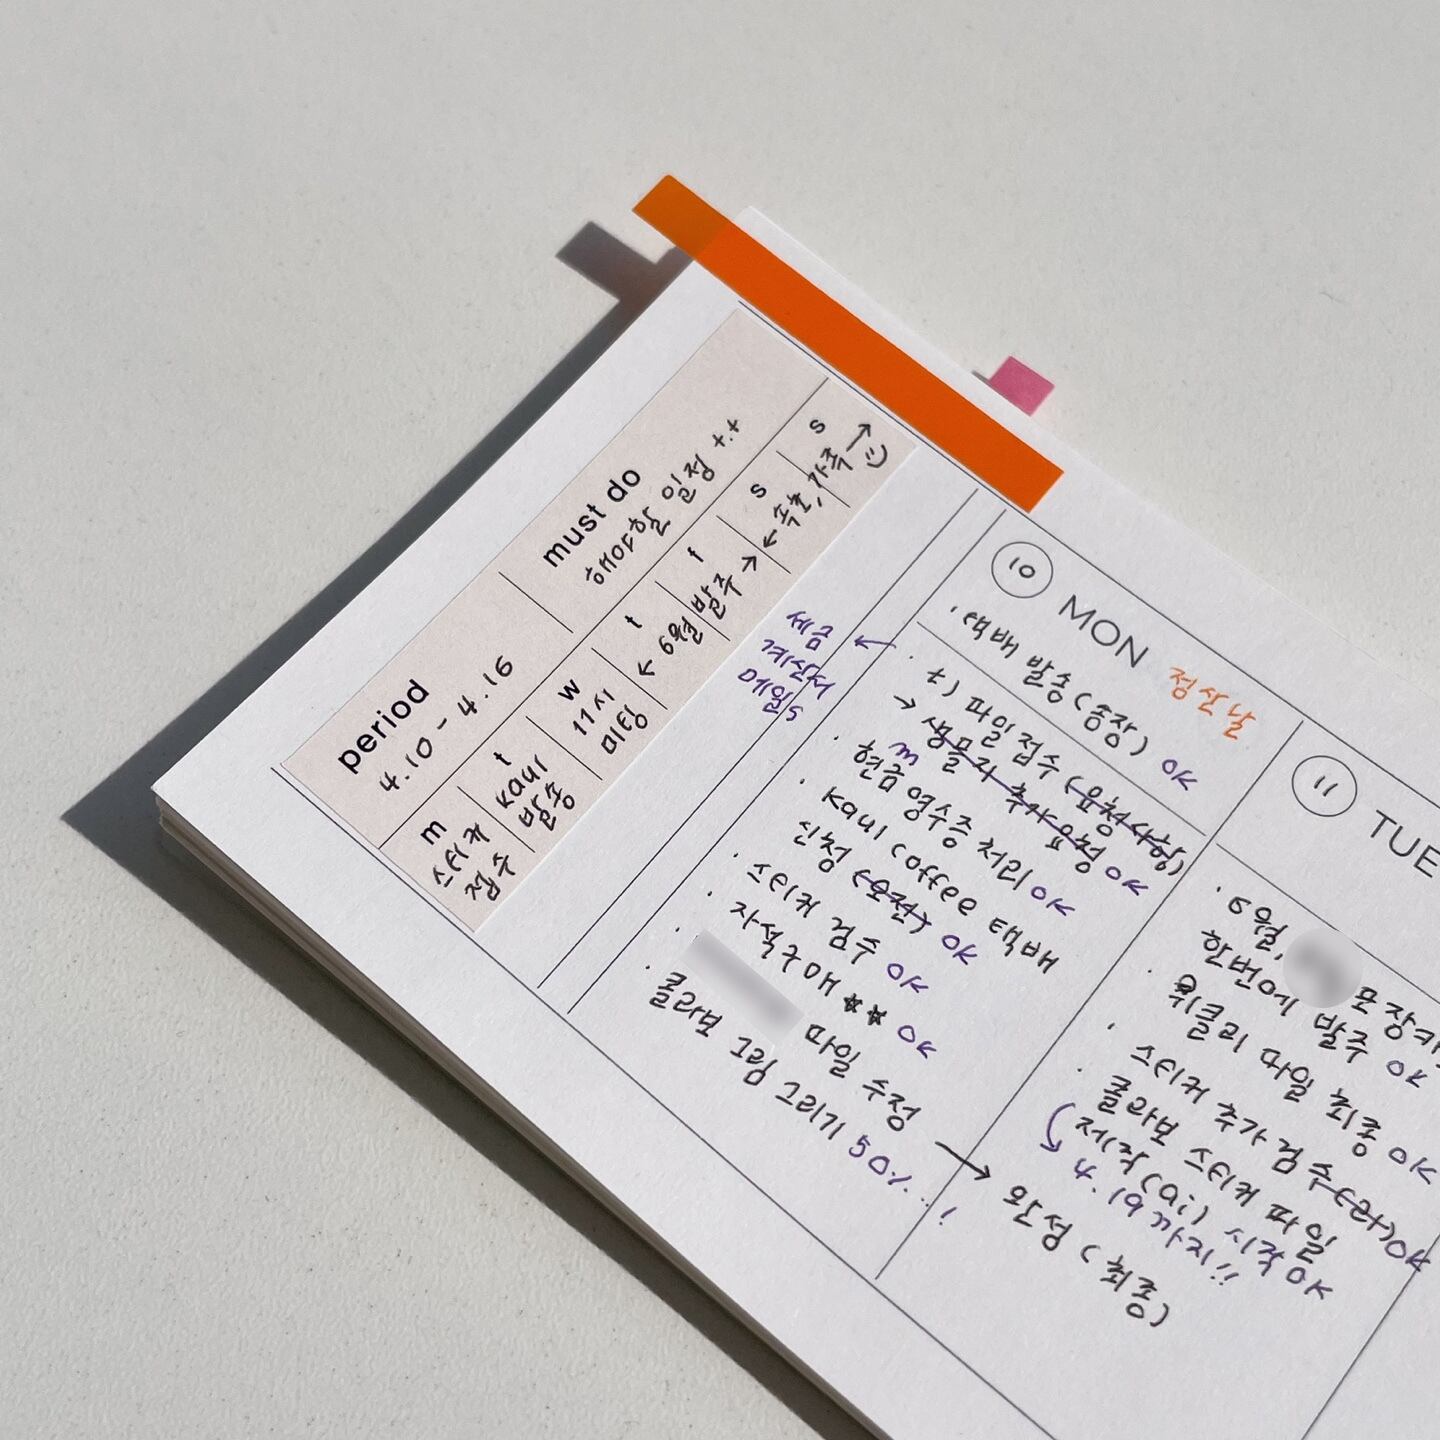 period
4.10 - 4.16
must do
해야할 일정 +.+
m
스티커
접수
t
kaui
발송
w
11시
미팅
t
f
← 6월 발주 →
s
s
← 속초, 가족 →
세금
계산서
메일s
10 MON 정산날
· 택배 발송 (송장) OK
· t) 파일 접수 (요청사항)
→ 생물지 추가 요청 OK
· m 현금 영수증 처리 OK
· kaui coffee 택배
신청 (오전) OK
· 스티커 검수 OK
· 자석구매 ** OK
· 파일 수정
· 콜라보 그림 그리기 50%..!
11 TUE
한번에 발주 OK
· 위클리 파일 최종 OK
· 스티커 추가 검수 OK
콜라보 스티커 파일
제작 (ai) 시작 OK
4.19까지!!
→ 완성 (최종)